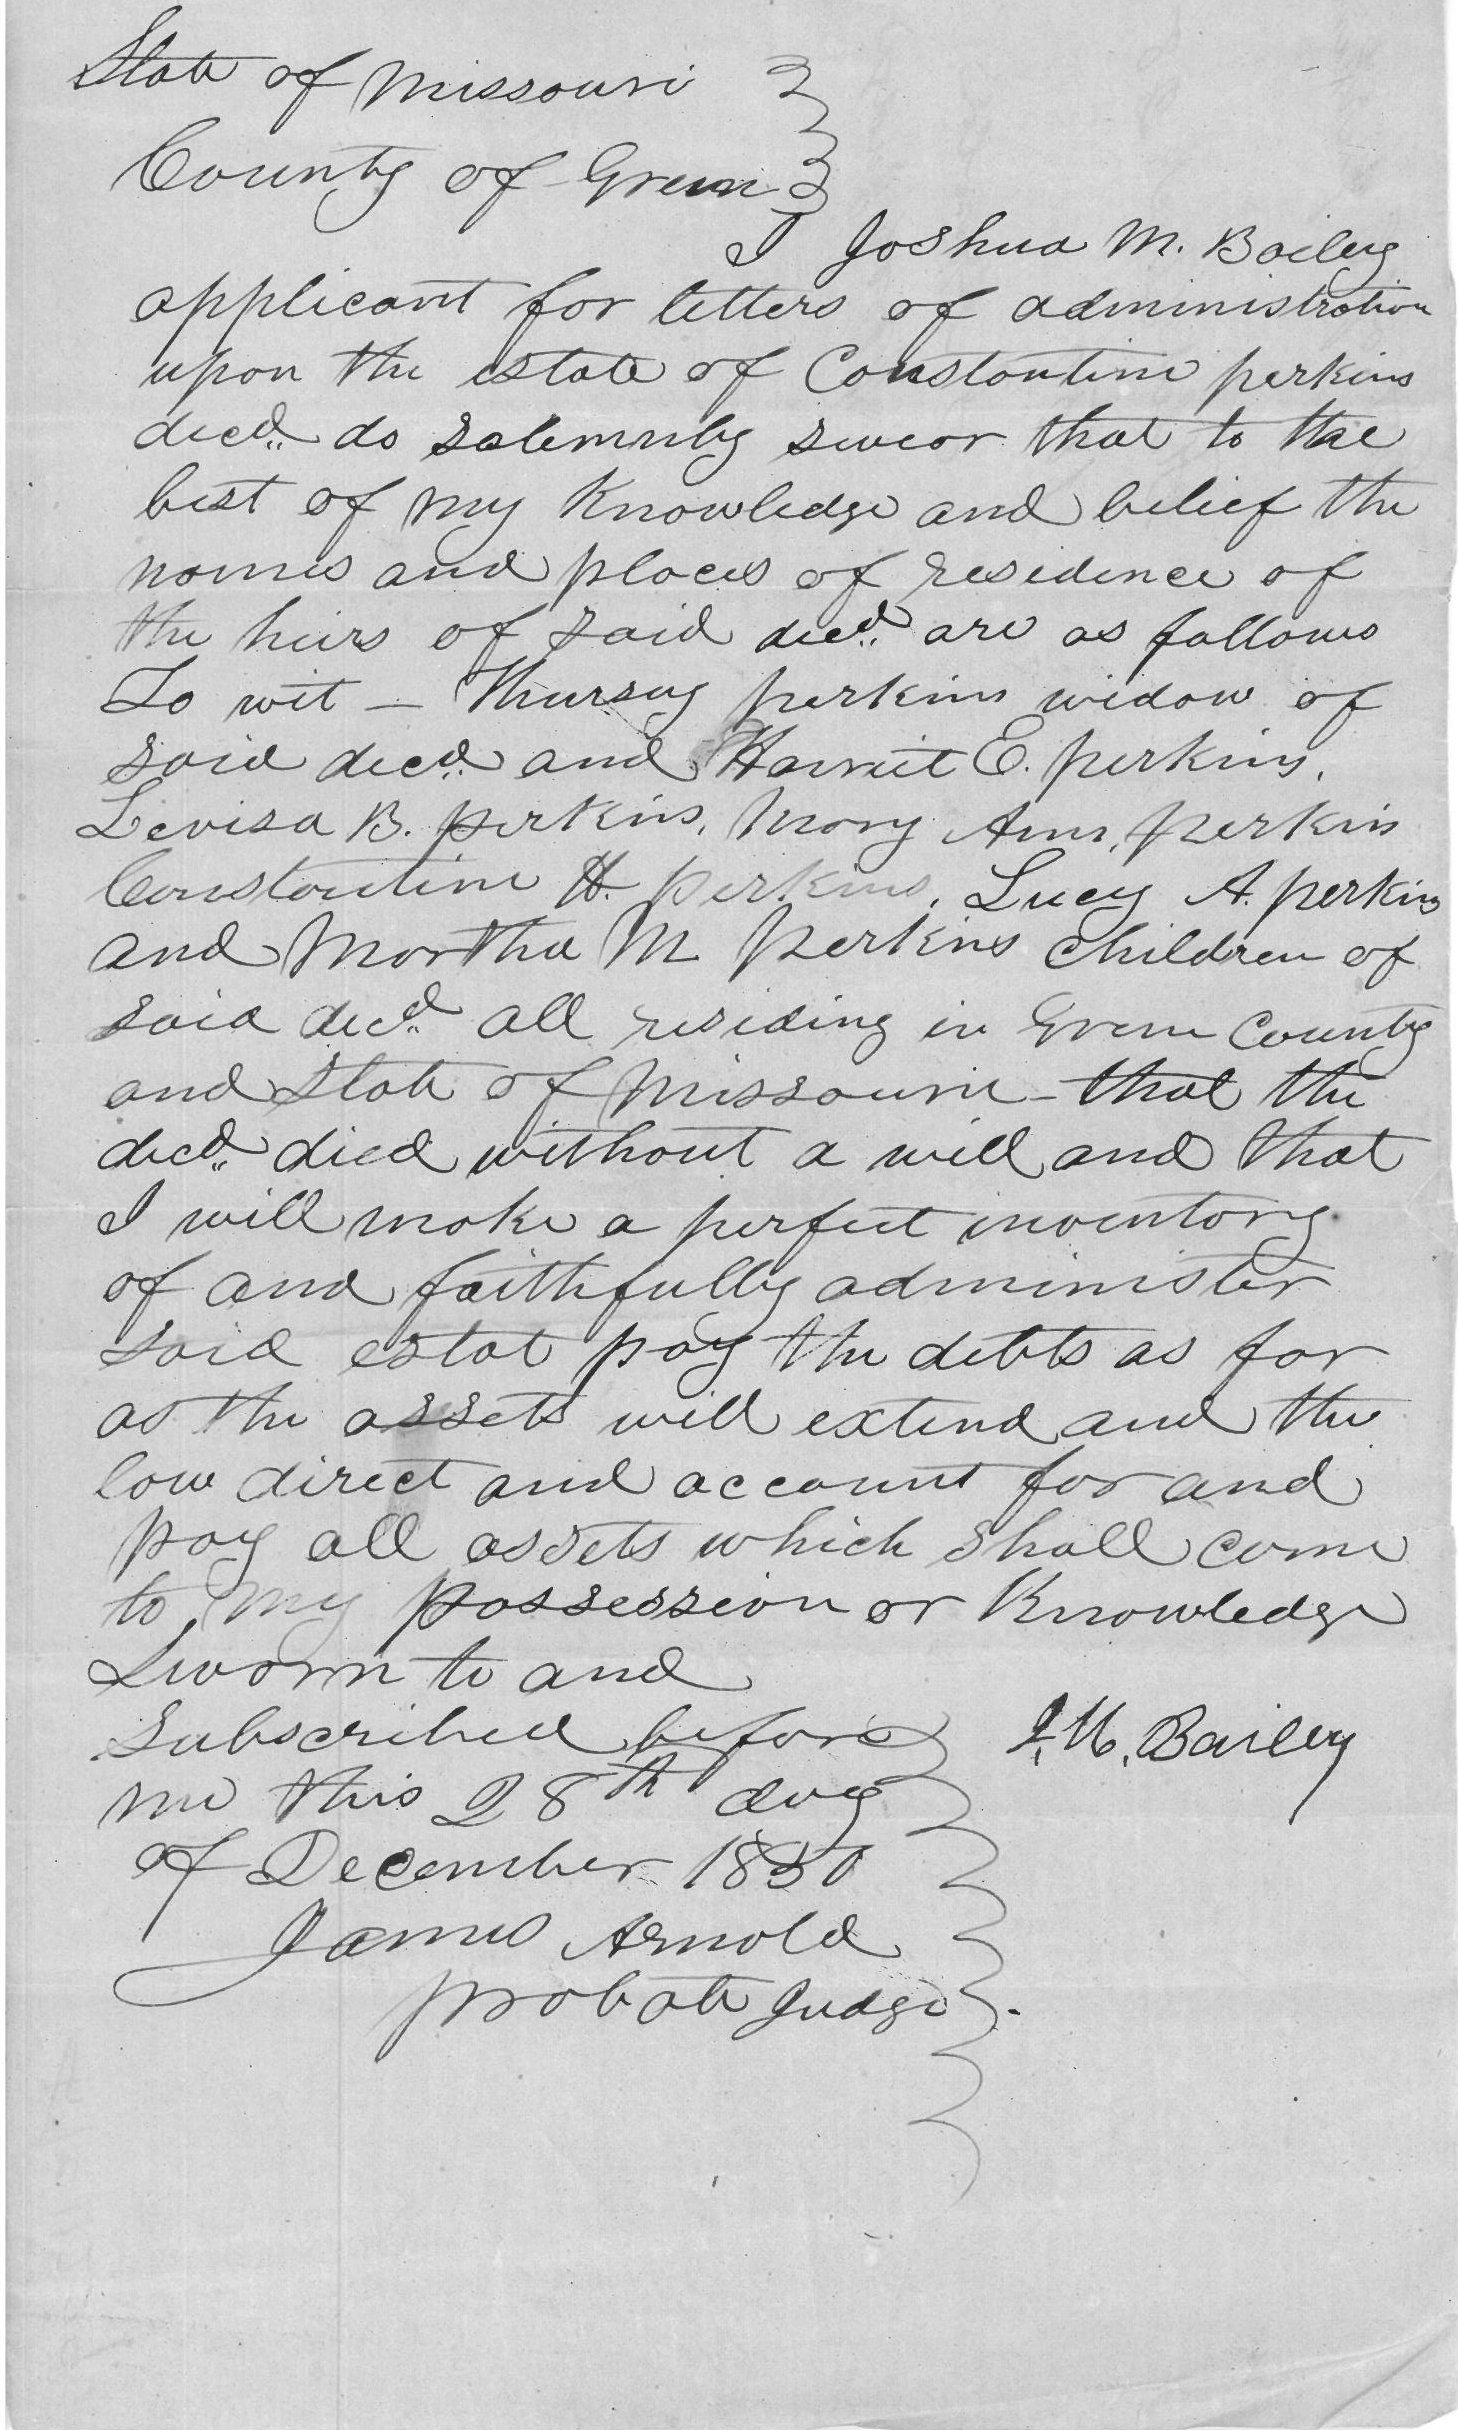 State of Missouri
County of Green
I Joshua M. Bailey
applicant for letters of administration
upon the estate of Constantine perkins
decd. do solemnly swear that to the
best of my Knowledge and belief the
names and places of residence of
the heirs of said decd. are as follows
To wit – Thursey perkins widow of
said decd. and Harriet E. perkins,
Levisa B. perkins, Mary Ann, perkins
Constantine H. perkins, Lucy A. perkins
and Martha M perkins children of
said decd. all residing in Green County
and State of Missouri – that the
decd. died without a will and that
I will make a perfect inventory
of and faithfully administer
said estat pay the debts as far
as the assets will extend and the
law direct and account for and
pay all assets which shall come
to my possession or Knowledge
Sworn to and
Subscribed before
me this 28th day
of December 1850
J. M. Bailey
James Arnold
probate Judge